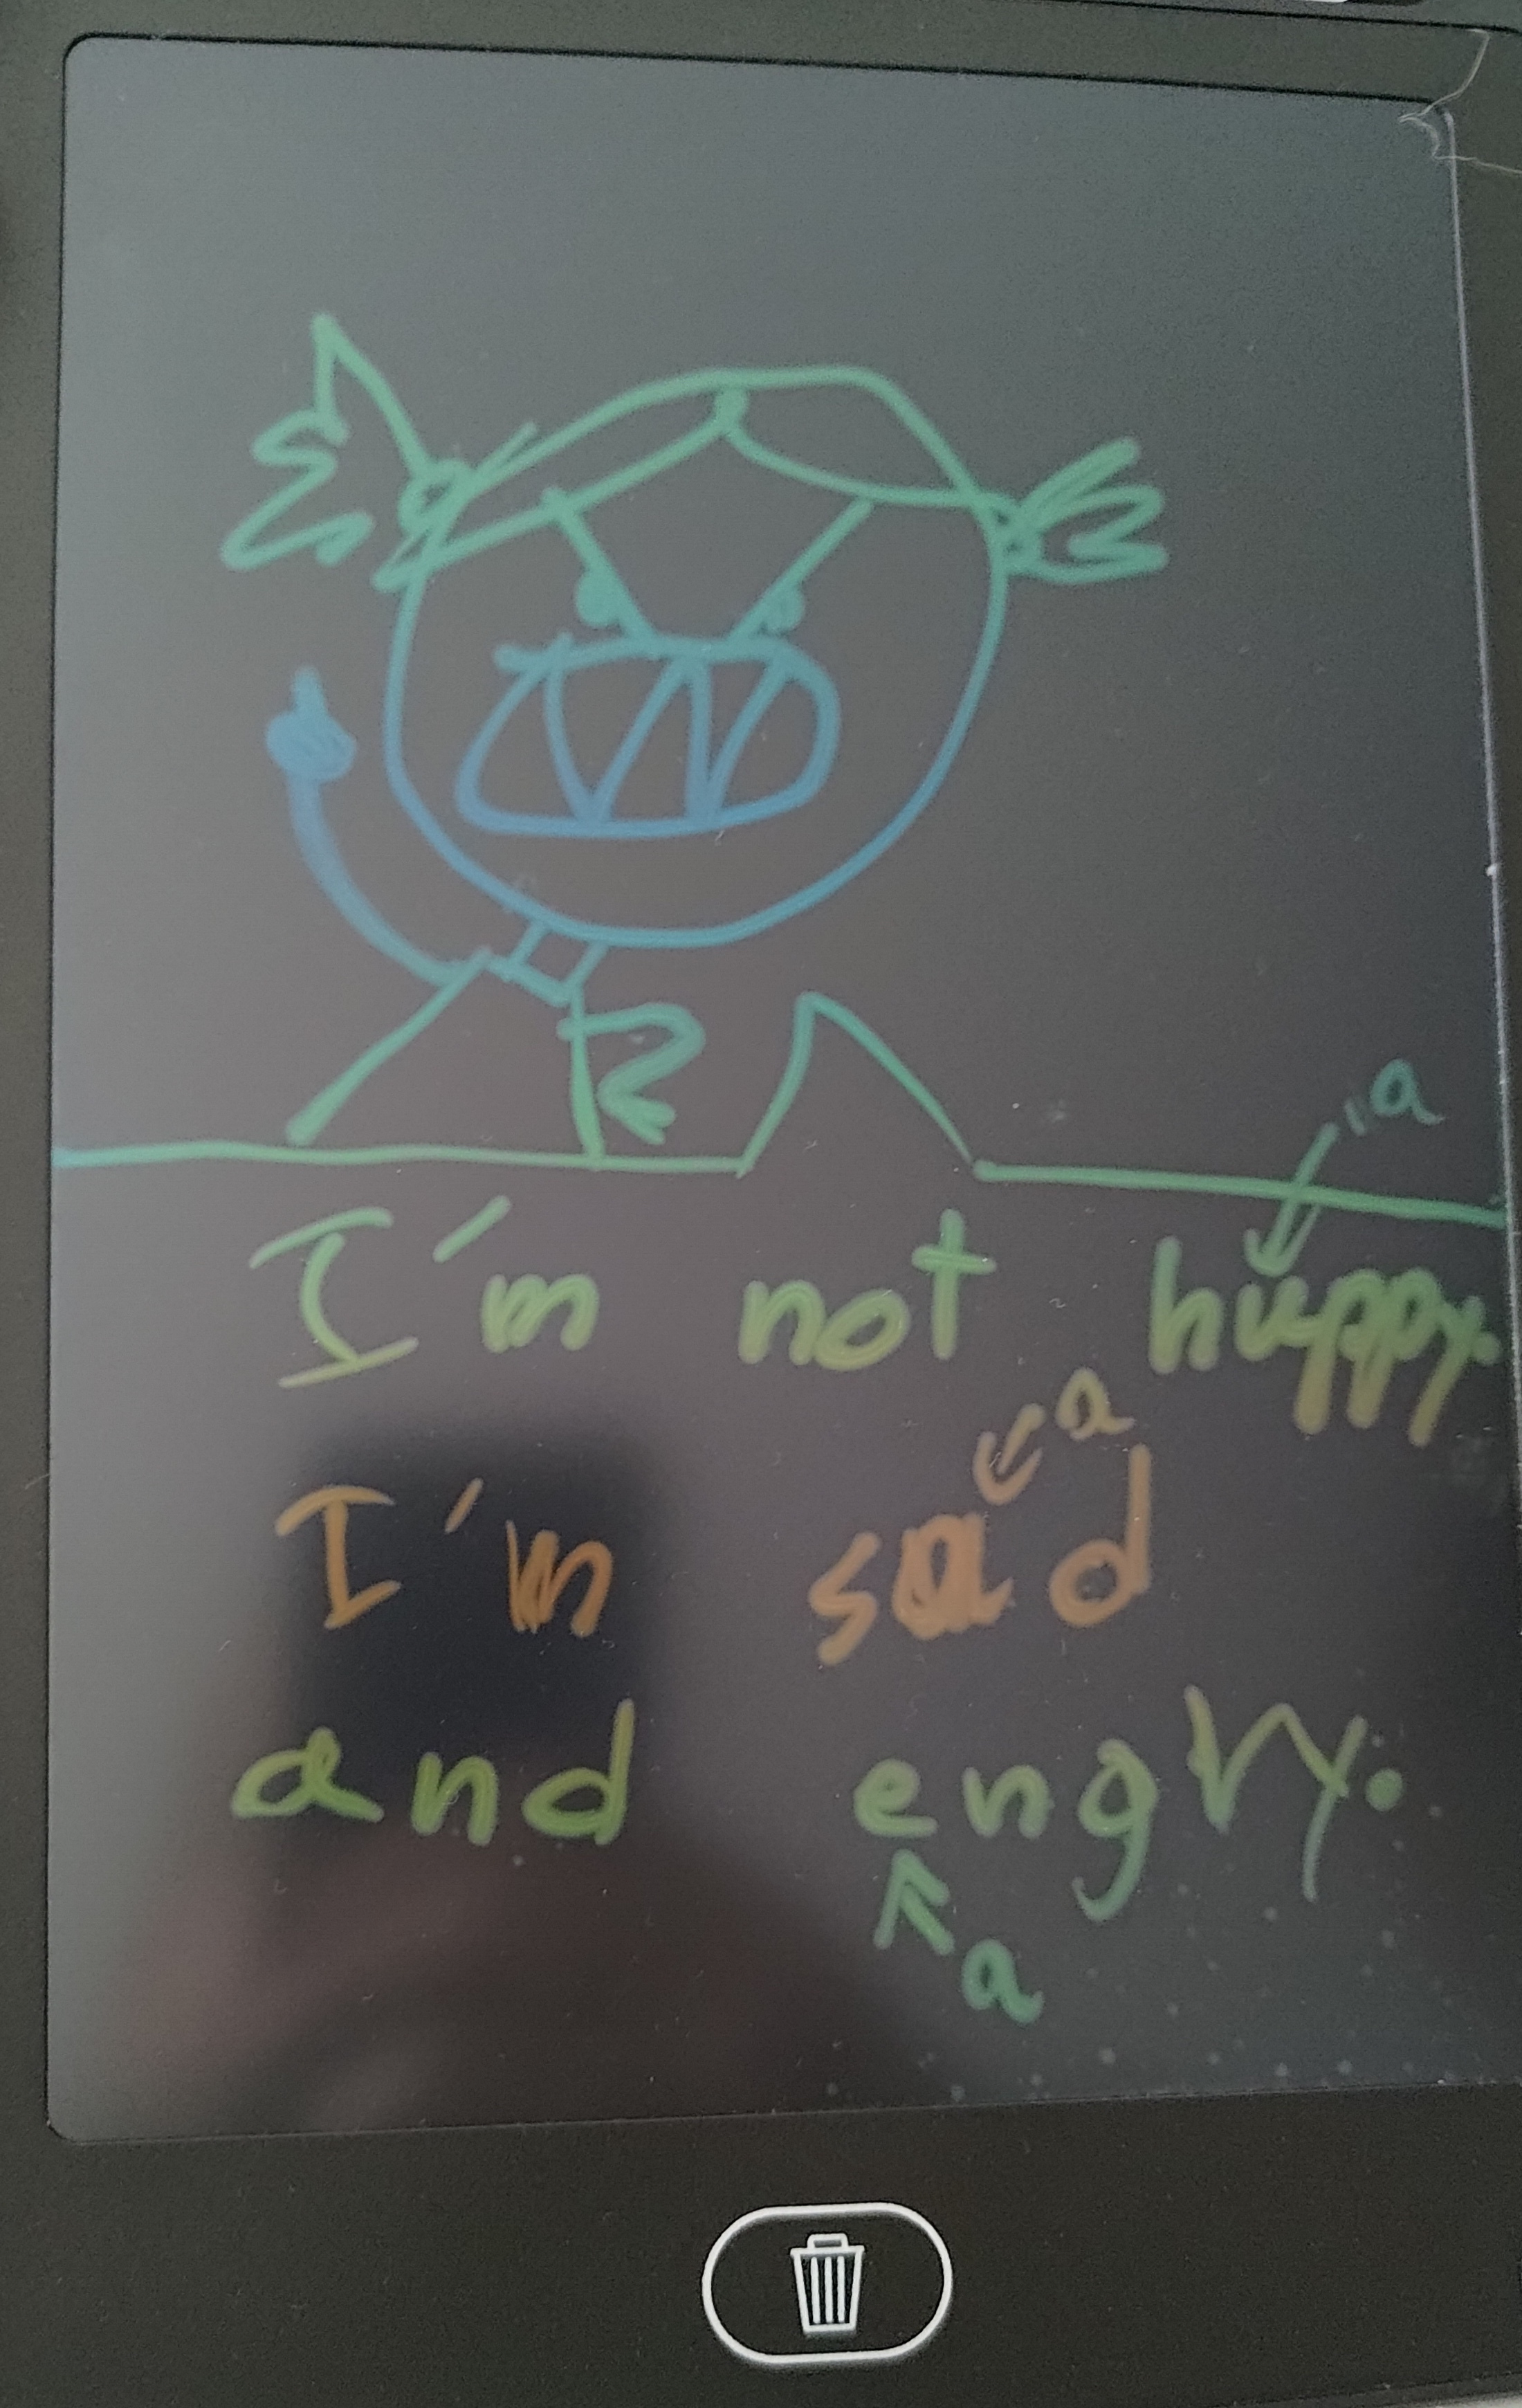 a
I'm not huppy.
a
I'm sad
and engry.
a